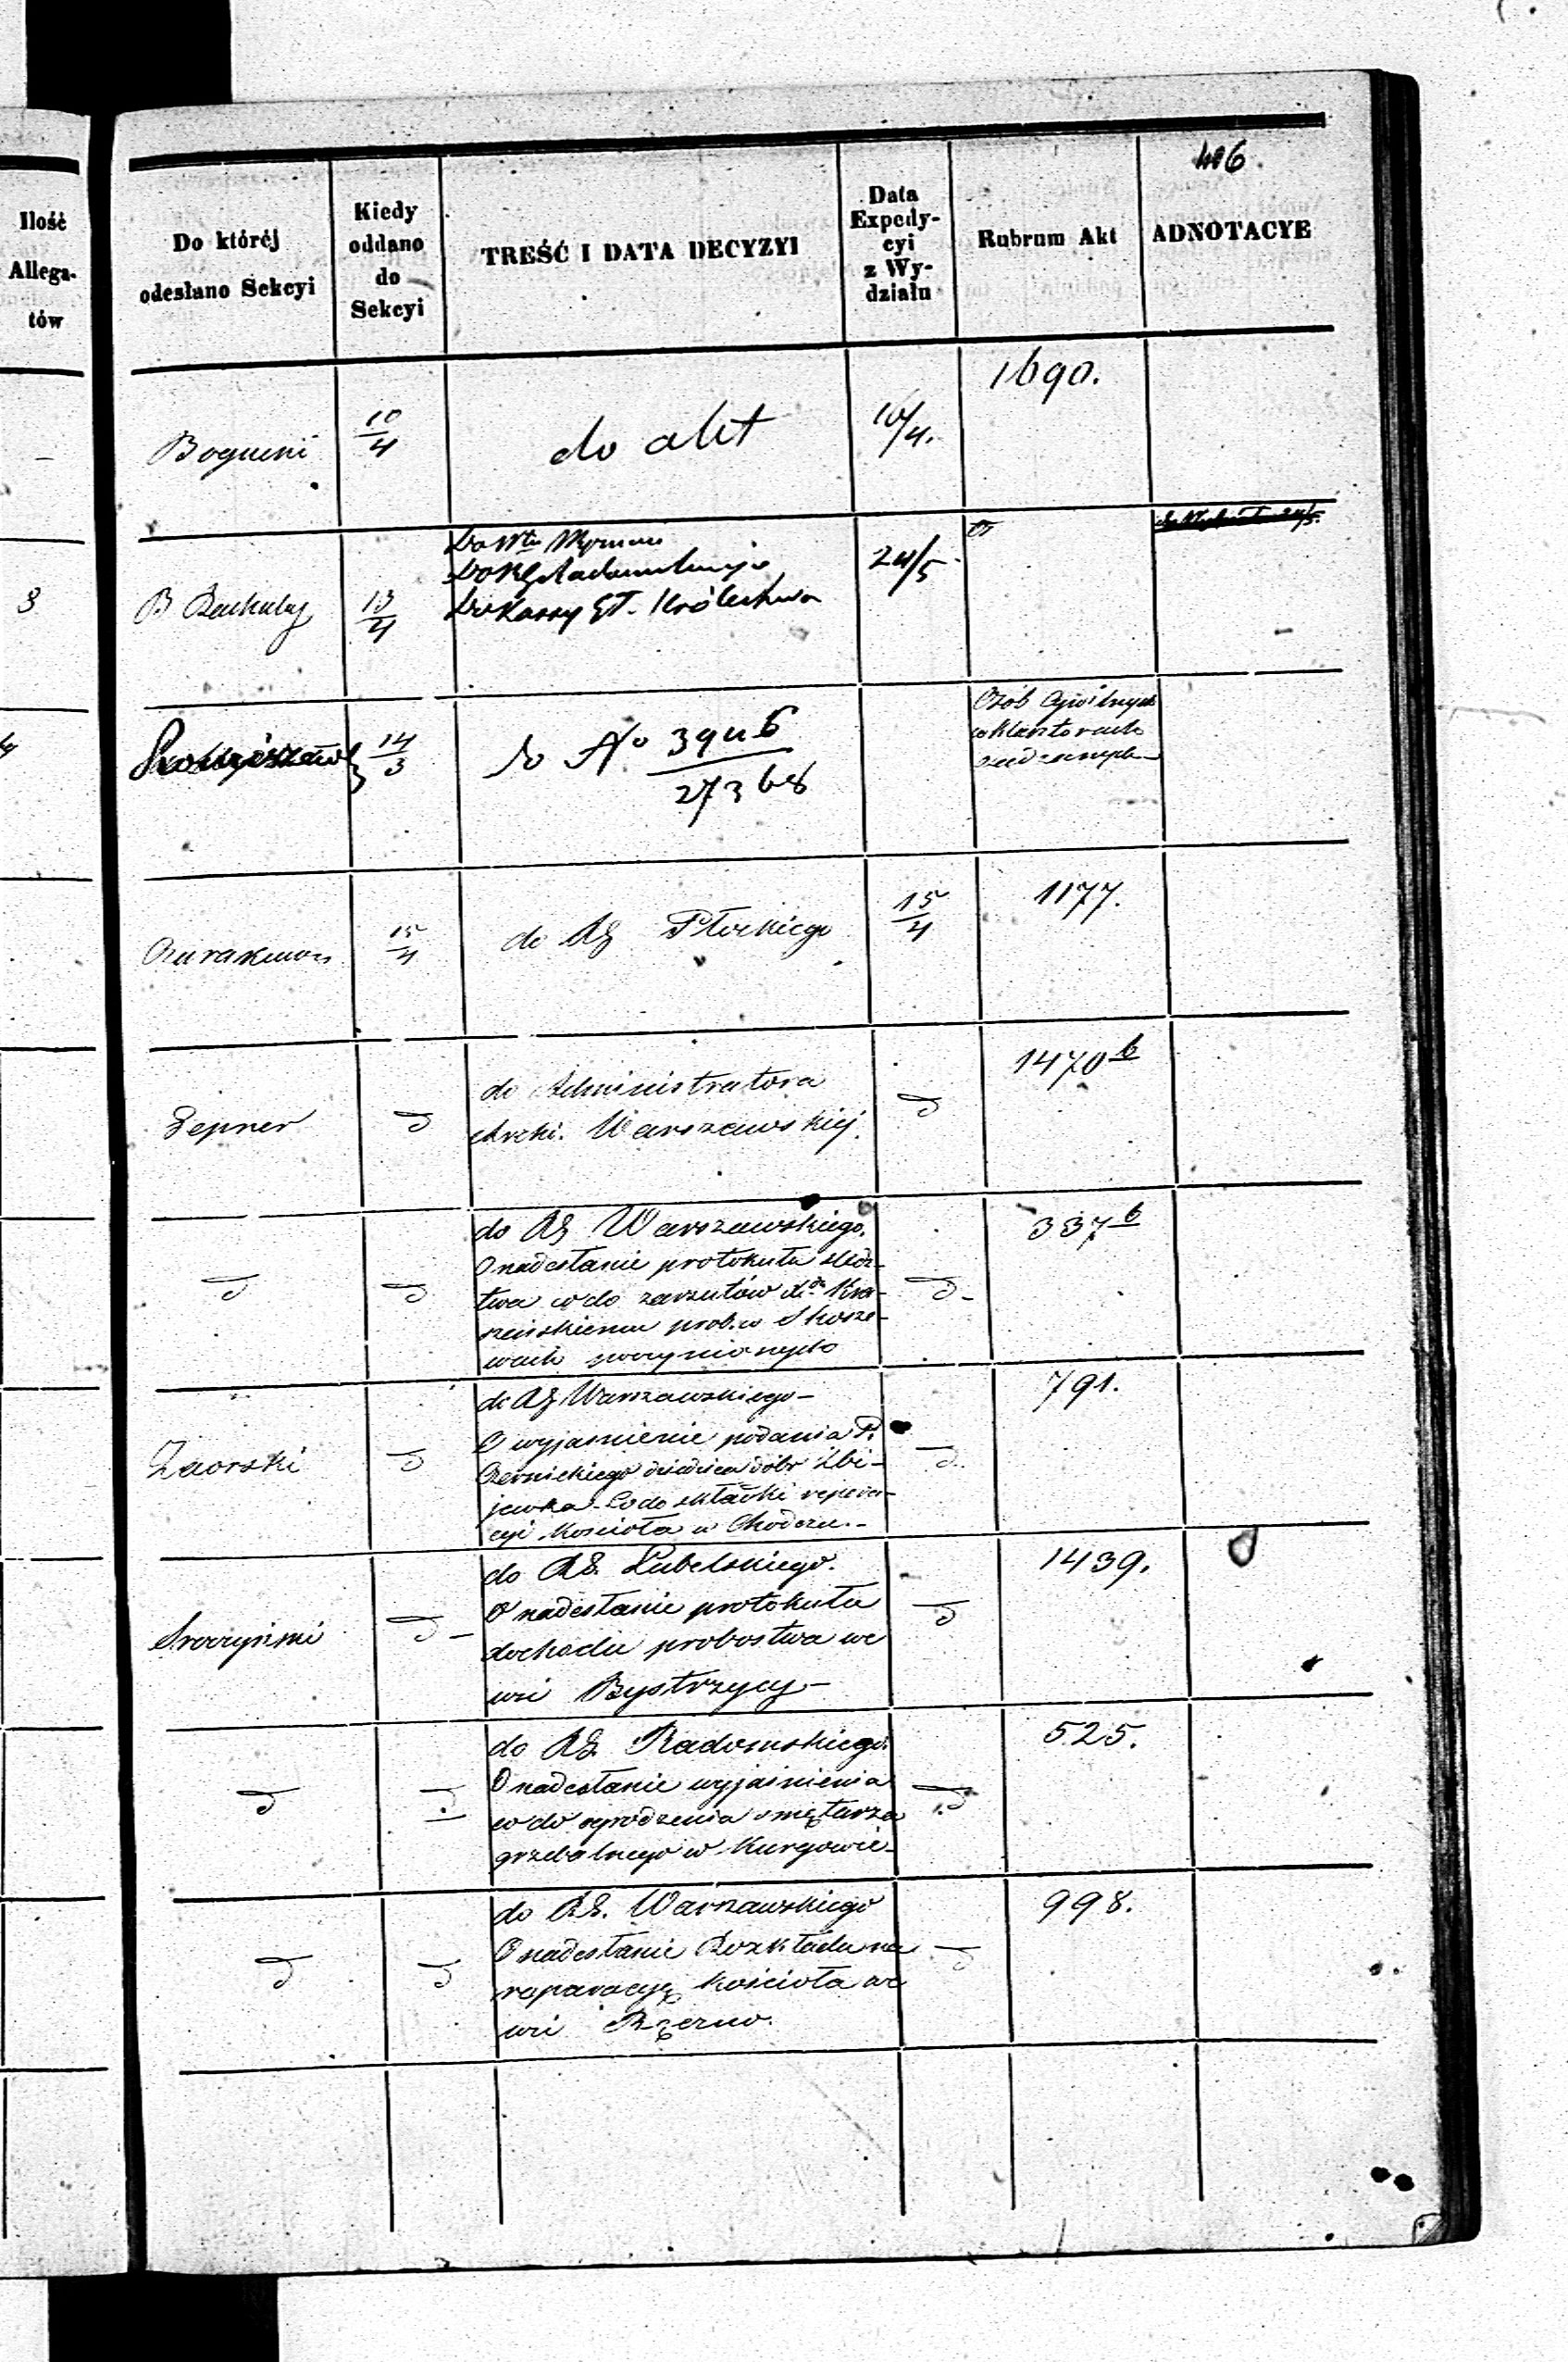 406.
Ilość
Allega-
tów
Do którój
odesłano Sekcyi
Kiedy
oddano
do
Sekcyi
TREŚĆ I DATA DECYZYI
Data
Expedy-
cyi
z Wy-
działu
Rubrum Akt
ADNOTACYE
Bogucki
10/4
do akt
10/4.
1690.
3
B
13/4
Do
Do RG
Do Kassy Gł. Królestwa
24/5
14/3
do No 3946/27368
Osób Cywilnych
w Klasztorach
15/4
do RG Płockiego
15/4
1177.
Lepner
do Administratora
Archi. Warszawskiej
1470 b
do RG Warszawskiego.
O nadesłanie protokułu śledz-
twa co do zarzutów Xdu Kra-
szeńskiemu prob. w Skosze-
wach poczynionych
337 b
Zaorski
do RG Warszawskiego-
O wyjasnienie podania P.
Czernickiego dziedzica dóbr Zbi-
jewka. Co do składki repera-
cyi Kościoła w Chodczu.-
791.
do RG. Lubelskiego.
O nadesłanie protokułu
dochodu probostwa we
wsi Bystrzycy-
1439.
do RG. Radomskiego.
O nadesłanie wyjaśnienia
co do ogrodzenia smętarza
grzebalnego w
525.
do RG. Warszawskiego
O nadesłanie Rozkładu na
reparacyę Kościoła we
wsi
998.